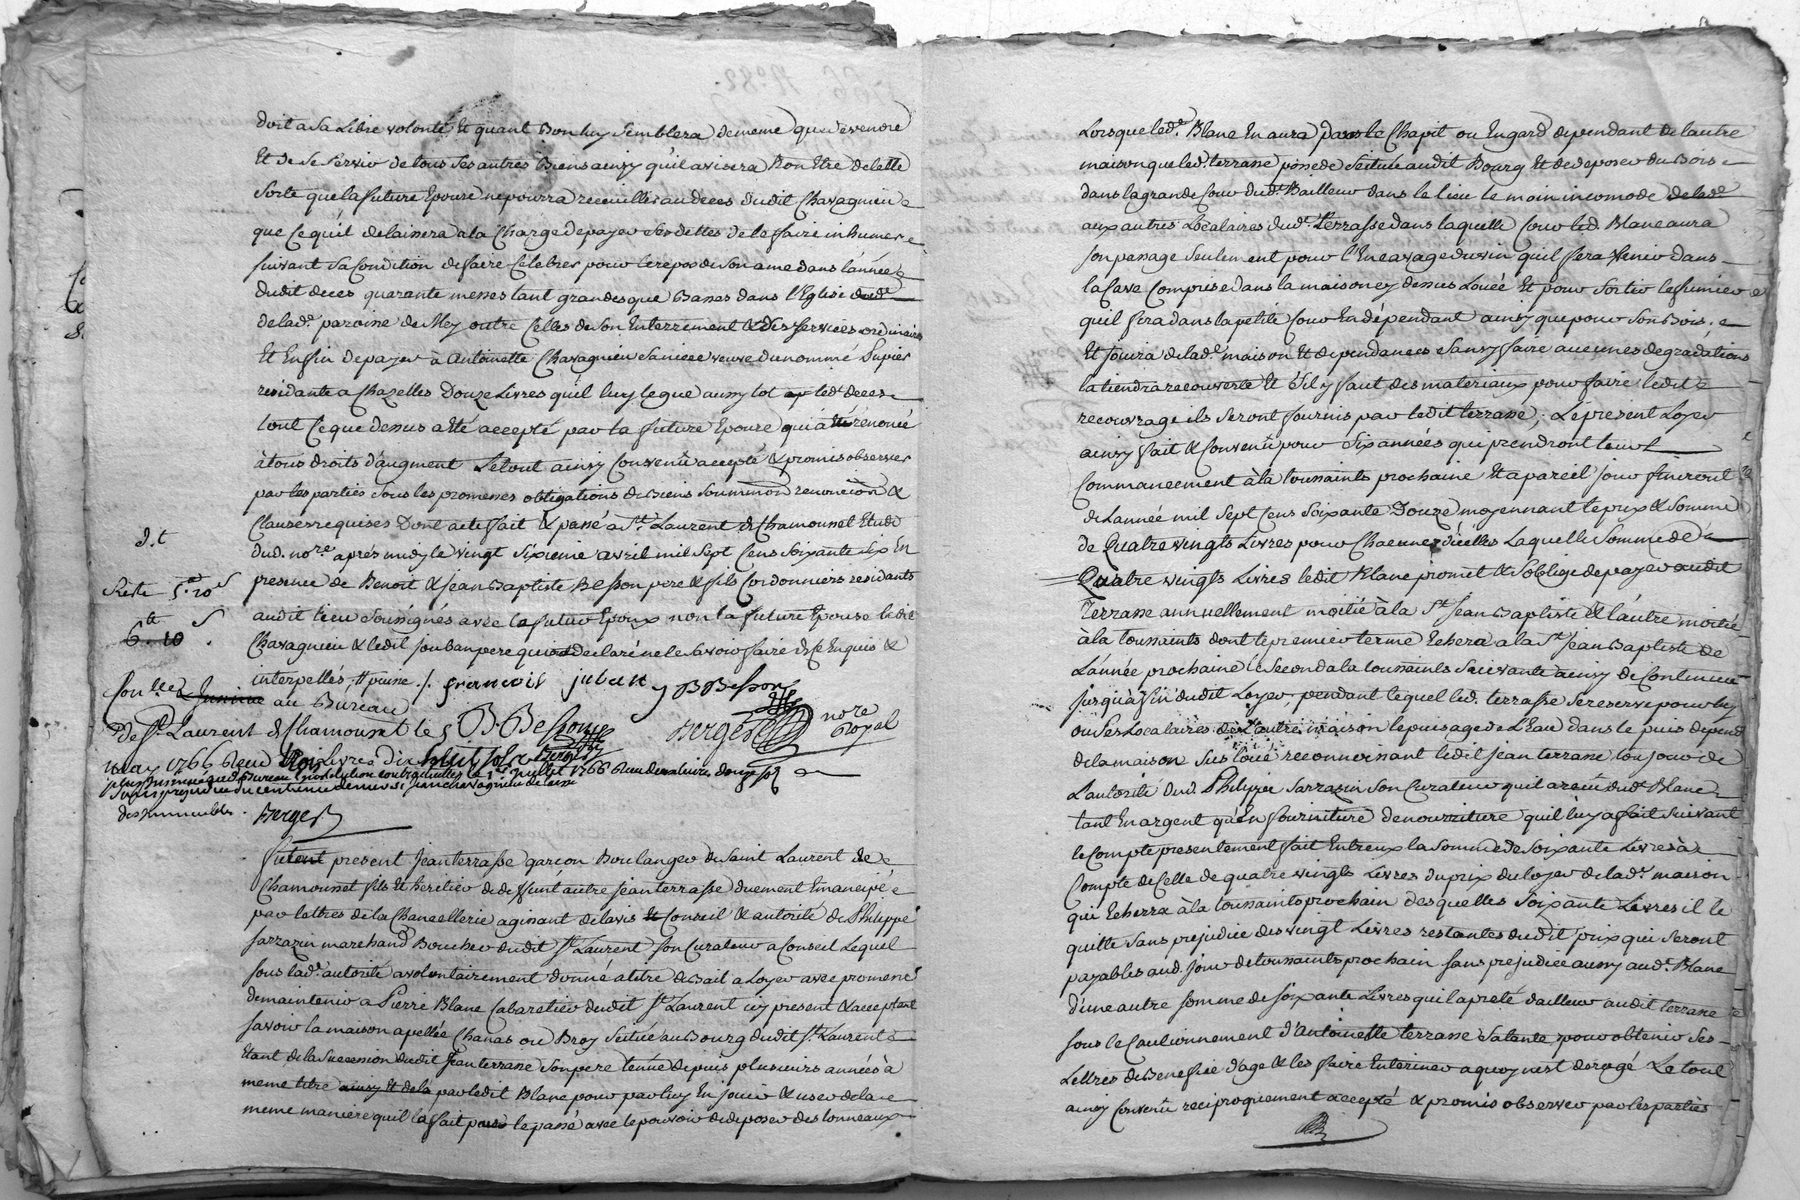 doit a sa Libre volonté Et quant Bon luy Semblera de meme que de vendre
Et de se servir de tous ses autres Biens ainsy qu'il avisera Bon Etre de cette
Sorte que la future Epouse ne pourra recueillir au deces dudit Chavagnieu
que Ce qu'il delaissera a la Charge de payer Ses dettes de le faire inhumer
suivant Sa Condition de faire Celebrer pour le repos de son ame dans l'année
dudit deces quarante messes tant grandes que Basses dans l'Eglise dud.
de lad.e paroisse de Mey outre Celles de son Enterrement & des services ordinaires
Et Enfin de payer a Antoinette Chavagnieu sa niece veuve du nommé Supier
residante a Chazelles Douze Livres qu'il luy legue aussy tot led.t deces
tout Ce que dessus a Eté accepté par la future Epouse qui a renoncé
à tous droits d'augment Le tout ainsy Convenû accepté & promis observer
par les parties sous les promesses obligations de Biens Soummon renoncion &
Clauses requises Dont acte fait & passé a St. Laurent de Chamousset Etude
dud. no.re apres midy le vingt Sixieme avril mil Sept Cens Soixante Six En
presence de Benoit & jean Baptiste Besson pere & fils Cordonniers residants
audit lieu Soussignés avec le futur Epoux non la future Epouse led.
Chavagnieu & ledit jouban pere qui ont declaré ne le savoir faire de Ce Enquis &
interpellés
d.t
Reste 5 10 s
6 10 s
françois juban
B Besson
B. Besson
Berger
no.re Royal
Con.llé au Bureau
De St. Laurent de Chamousset le 5
may 1766 Reçu trois Livres dix huit sols Berger
des immeubles. Berger
Futent present jean terrasse garçon Boulanger de Saint Laurent de
Chamousset fils Et heritier de deffunt autre jean terrasse duement Emancipé
par lettres de la Chancellerie agissant de l'avis Conseil & autorité de Philippe
Sarrazin marchand Boucher dudit St. Laurent son Curateur a Conseil Lequel
sous lad.e autorité a volontairement donné a titre de Bail a Loyer avec promesse
de maintenir a Pierre Blanc Cabaretier dudit St. Laurent icy present & acceptant
savoir la maison apellée Chanas ou Broy Scituée au Bourg dudit St. Laurent
Etant de la Succession dudit Jean terrasse son pere tenüe depuis plusieurs années à
meme titre ainsy Et de la par ledit Blanc pour par luy En jouir & user de la
meme maniere qu'il la fait par le passé avec le pouvoir de deposer des tonneaux
Lorsque led.t Blanc En aura dans le Chapit ou Engard dependant de l'autre
maison que led.t terrasse possede Scituée audit Bourg Et de deposer du Bois
dans la grande Cour dud.t Bailleur dans le lieu le moin incomode de lad.e
aux autres Localaires dud.t terrasse dans laquelle Cour led. Blanc aura
son passage Seulement pour l'Encavage du vin qu'il fera venir dans
la Cave Comprise dans la maison cy dessus Louéé Et pour Sortir le fumier
qu'il fera dans la petite Cour En dépendant ainsy que pour son Bois.
Et jouira de lad.e maison Et dependances Sans y faire aucunes degradations
la tiendra recouverte Et S'il y faut des materiaux pour faire ledit
recouvrage ils Seront fournis par ledit terrasse; Le present Loyer
ainsy fait & Convenû pour Six années qui prendront leur
Commancement à la toussaints prochaine Et a pareil jour finiront
de L'année mil Sept Cens Soixante Douze moyennant le prix & Somme
de Quatre vingts Livres pour Chacune d'icelles Laquelle Somme de
Quatre vingts Livres ledit Blanc promet & S'oblige de payer audit
Terrasse annuellement moitié à la St. jean Baptiste & l'autre moitié
à la toussaints dont le premier terme Echera a la St. jean Baptiste de
L'année prochaine le Second a la toussaints Suivante ainsy de Continuer
jusqu'à fin dudit Loyer, pendant lequel led. terrasse se reserve pour luy
ou Ses Localaires de l'autre maison le puisage de L'Eau dans le puis depend.
de la maison Sus Louée reconnoissant ledit jean terrasse toujour de
L'autorité dud. Philippe Sarrazin Son Curateur qu'il a reçû dud.t Blanc
tant En argent qu'En fourniture de nourriture qu'il luy a fait Suivant
le Compte presentement fait Entreux la Somme de Soixante Livres à
Compte de Celle de quatre vingts Livres du prix du loyer de lad.e maison
qui Echerra à la toussaints prochain desquelles Soixante Livres il le
quitte Sans prejudice des vingt Livres restantes dudit prix qui Seront
payables aud. jour de toussaints prochain Sans prejudice aussy aud.t Blanc
d'une autre Somme de soixante Livres qu'il a preté d'ailleur audit terrasse
sous le Cautionnement d'Antoinette terrasse Sa tante, pour obtenir Ses
Lettres de Benefice d'age & les faire Enteriner a quoy n'est derogé Le tout
ainsy Convenû reciproquement accepté & promis observer par les parties